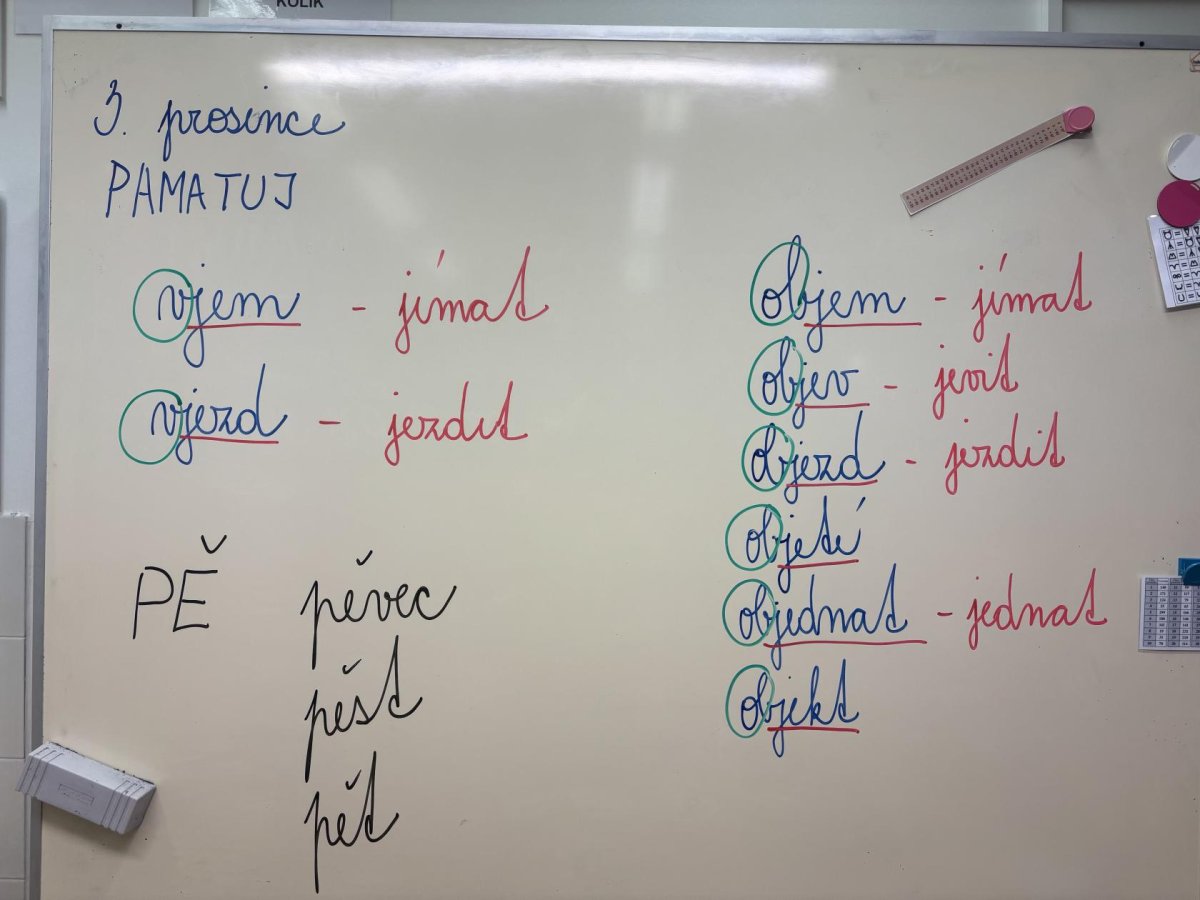 KOLIK
3. prosince
PAMATUJ
vjem - jímat
vjezd - jezdit
objem - jímat
objev - jevit
objezd - jezdit
objetí
objednat - jednat
objekt
PĚ
pěvec
pěst
pět